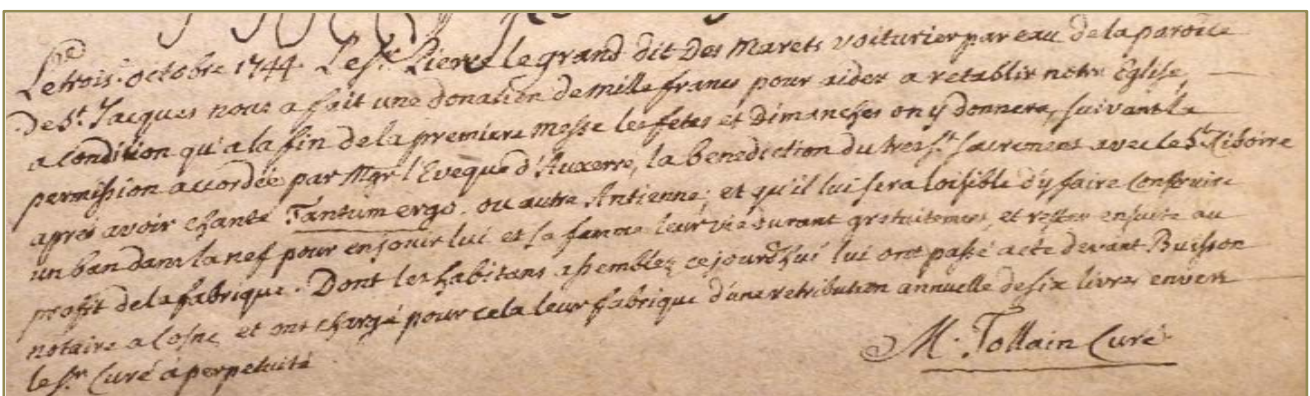 Le trois octobre 1744. Le Sr. Pierre le grand dit Des Marets voiturier par eau de la paroice
de St. Jacques nous a fait une donation de mille francs pour aider a retablir notre Eglise,
a condition qu'a la fin de la premiere Messe les fetes et Dimanches on y donnera, suivant la
permission accordée par Mgr l'Eveque d'Auxerre, la benediction du tres St. Sacrement avec le St Ciboire
après avoir chanté Tantum ergo. ou autre Antienne; et qu'il lui sera loisible d'y faire construire
un ban dans la nef pour en jouir lui et sa famme leur vie durant gratuitement, et rester ensuite au
profit de la fabrique. Dont les habitans assemblez cejourd'hui lui ont passé acte devant Buisson
notaire a Cosne et ont chargé pour cela leur fabrique d'une retribution annuelle de six livres envers
le Sr. Curé à perpetuité
M. Tollain Curé